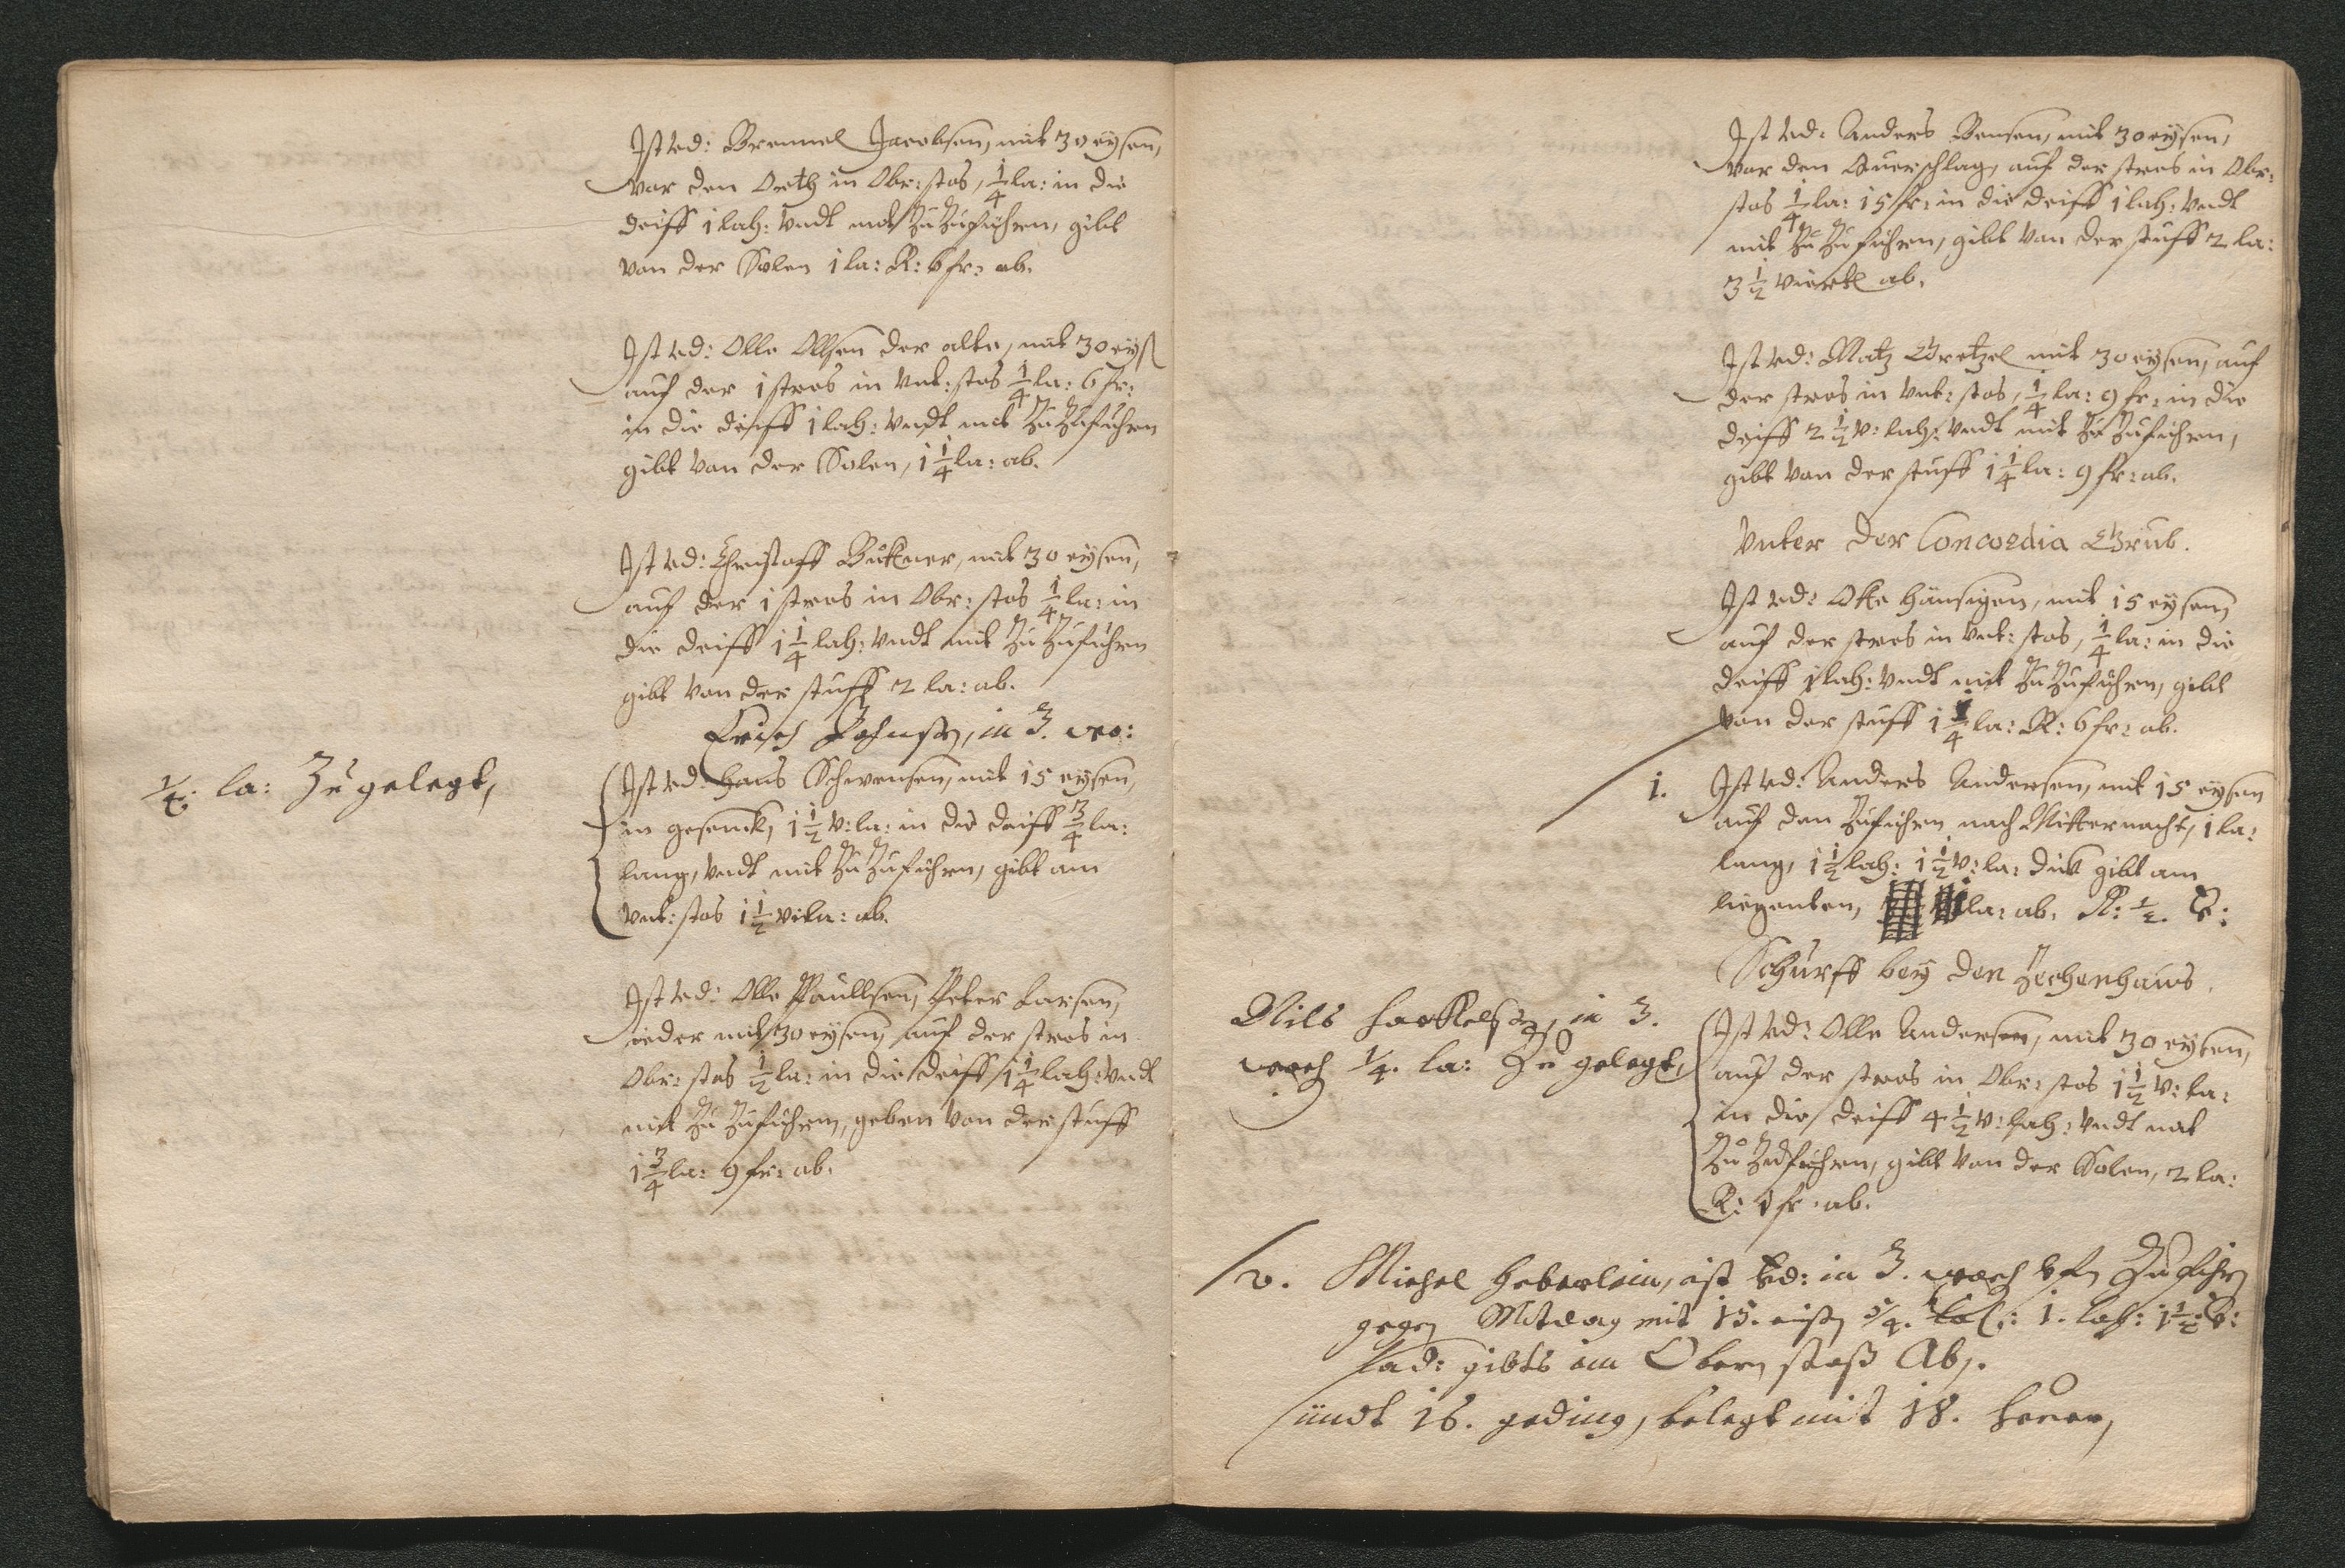 Ist vd: Bremmel Jacobsen, mit 30 eysen,
vor den Orth in Obr: stos, 1/4 la: in die
deiff 1 lah: vndt mit Zu Zufuhren, gibt
von der Solen 1 la: R: 6 fr: ab.
Ist vd: Olle Ollsen der alte, mit 30 eys
auf der 1 stros in vnt: stos 1/4 la: 6 fr:
in die deiff 1 lah: vndt mit Zu Zufuhren
gibt von der Solen, 1 1/4 la: ab.
Ist vd: Christoff Buttner, mit 30 eysen,
auf der 1 stros in Obr: stos 1/4 la: in
die deiff 1 1/4 lah: vndt mit Zu Zufuhren
gibt von der stuff 2 la: ab.
Erich Johnsen, in 3. wo:
1/2: la: Zu gelegt,
Ist vd: Hans Schwensen, mit 15 eysen,
in gesenck, 1 1/2 v: la: in die deiff 3/4 la:
lang, vndt mit Zu Zufuhren, gibt am
vnt: stos 1 1/2 v: la: ab.
Ist vd: Olle Paullsen, Peter Larsen,
ieder mit 30 eysen, auf der stros in
Obr: stos 1/2 la: in die deiff 1 1/4 lah: vndt
mit Zu Zufuhren, geben von der stuff
1 3/4 la: 9 fr: ab.
Ist vd: Anders Bensen, mit 30 eysen,
vor den Querschlag, auf der stros in Obr:
stos 1/4 la: 15 fr: in die deiff 1 lah: vndt
mit Zu Zufuhren, gibt von der stuff 2 la:
3 1/2 viertl ab.
Ist vd: Matz Wretzel mit 30 eysen, auf
der stros in vnt: stos, 1/4 la: 9 fr: in die
deiff 2 1/2 v: lah: vndt mit Zu Zufuhren,
gibt von der stuff 1 1/4 la: 9 fr: ab.
Vnter der Concordia Grub.
Ist vd: Otte Hansigen, mit 15 eysen,
auf der stros in vnt: stos, 1/4 la: in die
deiff 1 lah: vndt mit Zu Zufuhren, gibt
von der stuff 1 1/4 la: R: 6 fr: ab.
1. Ist vd: Anders Andersen, mit 15 eysen
auf den Zufuhren nach Mitternacht, 1 la:
lang, 1 1/2 lah: 1 1/2 v: la: dick gibt am
liegenten, la: ab. R: 1/2. v:
Schurff bey den Zechenhaus.
Nils in 3.
woch 1/4. la: Zu gelegt,
Ist vd: Olle Andersen, mit 30 eysen,
auf der stros in Obr: stos 1 1/2 v: la:
in die deiff 4 1/2 v: lah: vndt mit
Zu Zufuhren, gibt von der Solen, 2 la:
R: 1 fr: ab.
Michel Heberlein, ist vd: in 3. woch vfn Zufuhrn
gegen Mitdag mit 15. eisen 3/4. 1. lah: 1 1/2 v:
lad: gibts im Obern stoß Ab.
sündt 16. geding, belegt mit 18. Heuer,